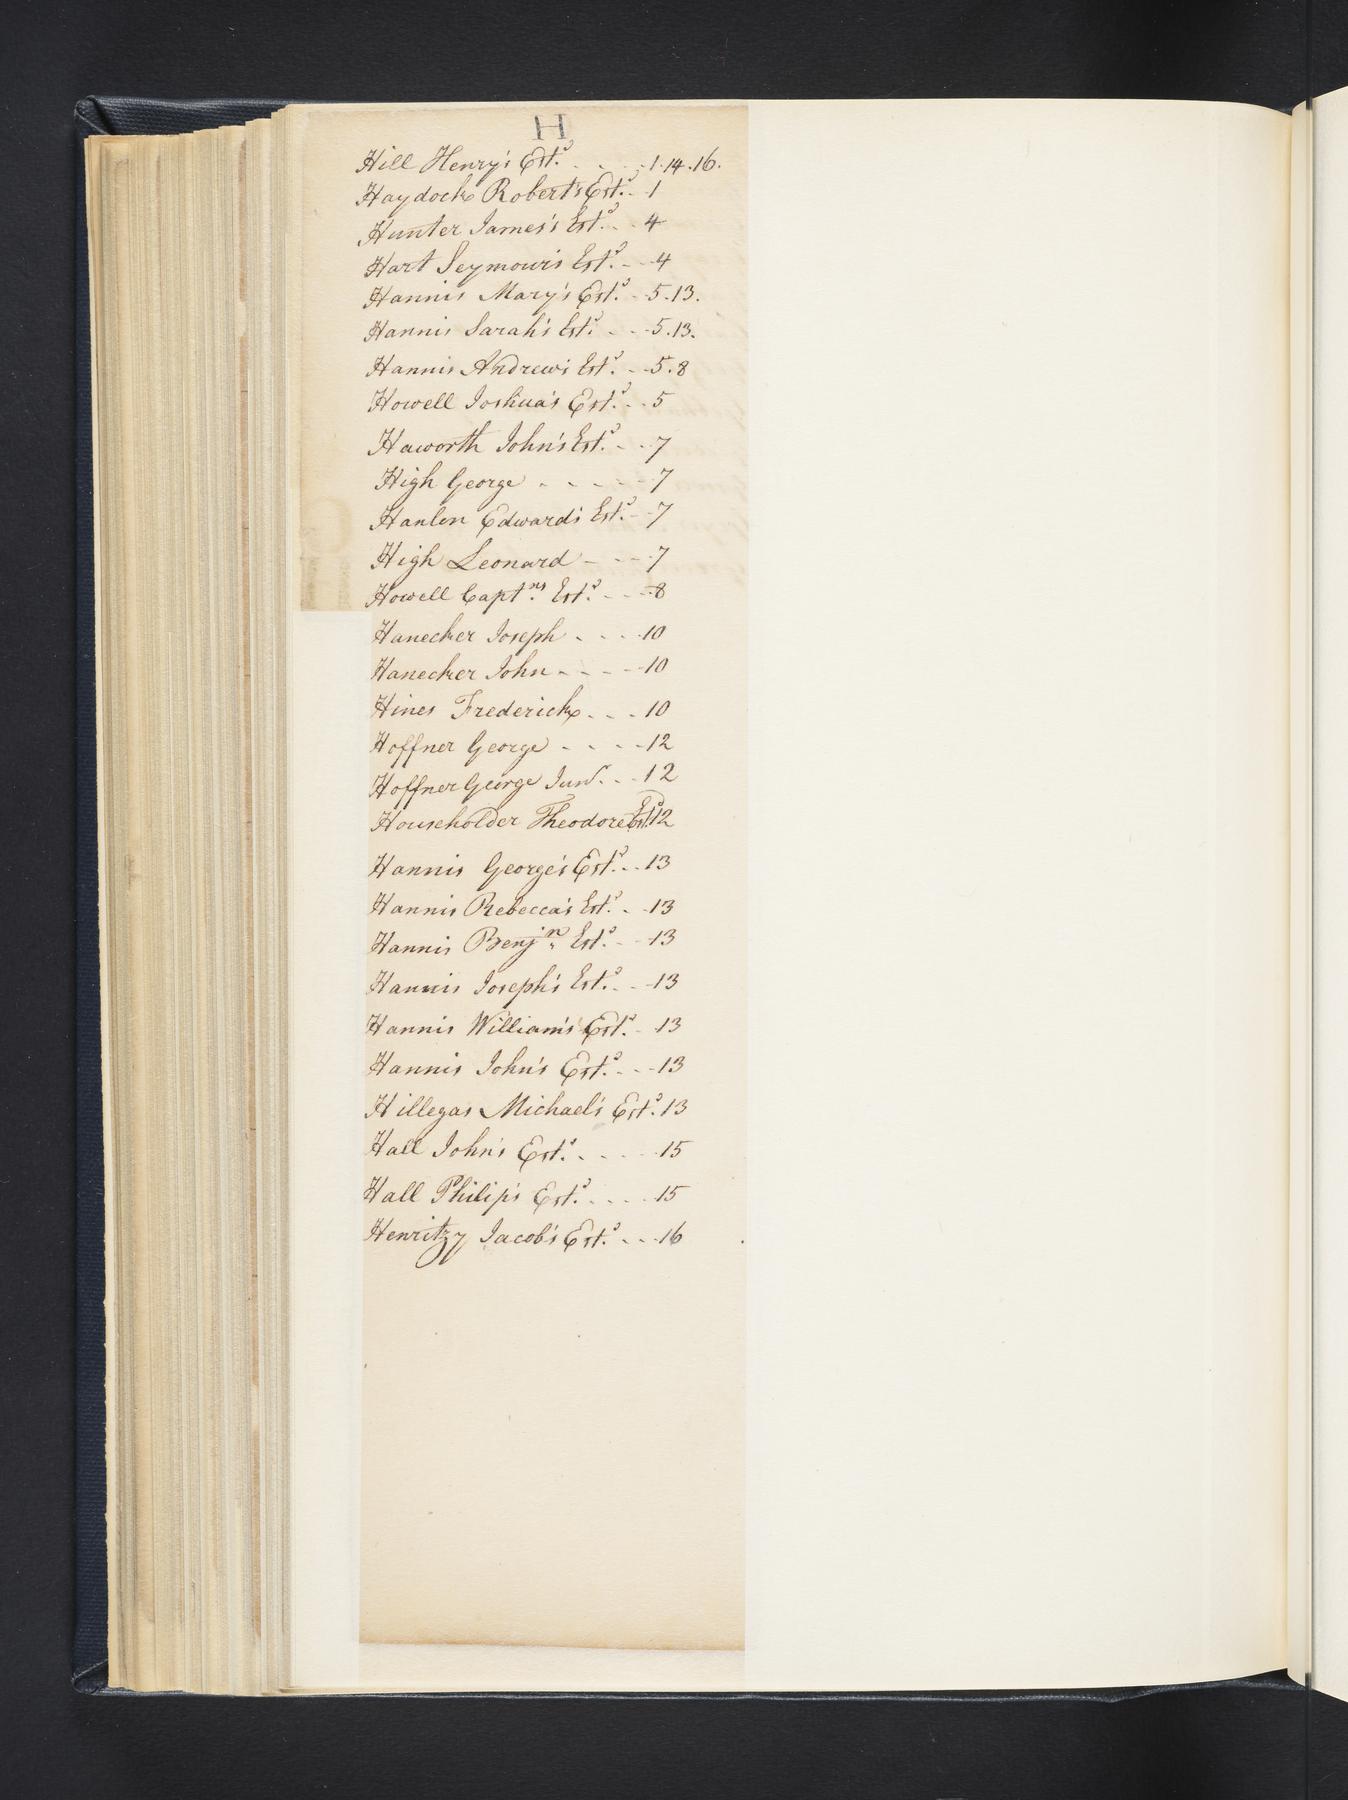 H
Hill Henry's Est.ᵉ . . . . 1.14.16.
Haydock Robert's Est.ᵉ - - 1
Hunter James's Est.ᵉ - - 4
Hart Seymour's Est.ᵉ - - 4
Hannis Mary's Est.ᵉ - 5.13.
Hannis Sarah's Est.ᵉ - - - 5.13.
Hannis Andrew's Est.ᵉ - - 5.8
Howell Joshua's Est.ᵉ - - 5
Haworth John's Est.ᵉ - - 7
High George - - - - - 7
Hanlon Edward's Est.ᵉ - - 7
High Leonard - - - - 7
Howell Captⁿˢ. Est.ᵉ - - - 8
Hanecker Joseph - - - - 10
Hanecker John - - - - - 10
Hines Frederick - - - 10
Hoffner George - - - - 12
Hoffner George Junʳ. - - 12
Householder Theodore Est.ᵉ 12
Hannis George's Est.ᵉ - - 13
Hannis Rebecca's Est.ᵉ - - 13
Hannis Benjⁿ. Est.ᵉ - - 13
Hannis Joseph's Est.ᵉ - - - 13
Hannis William's Est.ᵉ - 13
Hannis John's Est.ᵉ - - - 13
Hillegas Michael's Est.ᵉ 13
Hall John's Est.ᵉ - - - - - 15
Hall Philip's Est.ᵉ - - - - 15
Henritzy Jacob's Est.ᵉ - - - 16